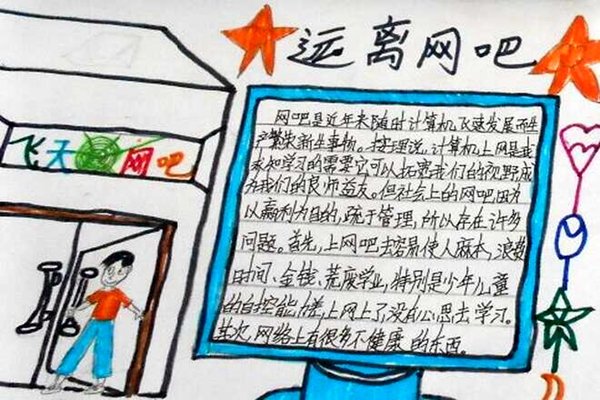 远离网吧
飞天网吧
网吧是近年来随时计算机飞速发展而生
产繁荣新生事物。按理说，计算机上网是我
求知学习的需要它可以拓宽我们的视野成
为我们的良师益友。但社会上的网吧因为
以赢利为目的，疏于管理，所以存在许多
问题。首先，上网吧去容易使人麻木，浪费
时间、金钱、荒废学业，特别是少年儿童
的自控能差，上网上了没有心思去学习。
其次，网络上有很多不健康的东西。